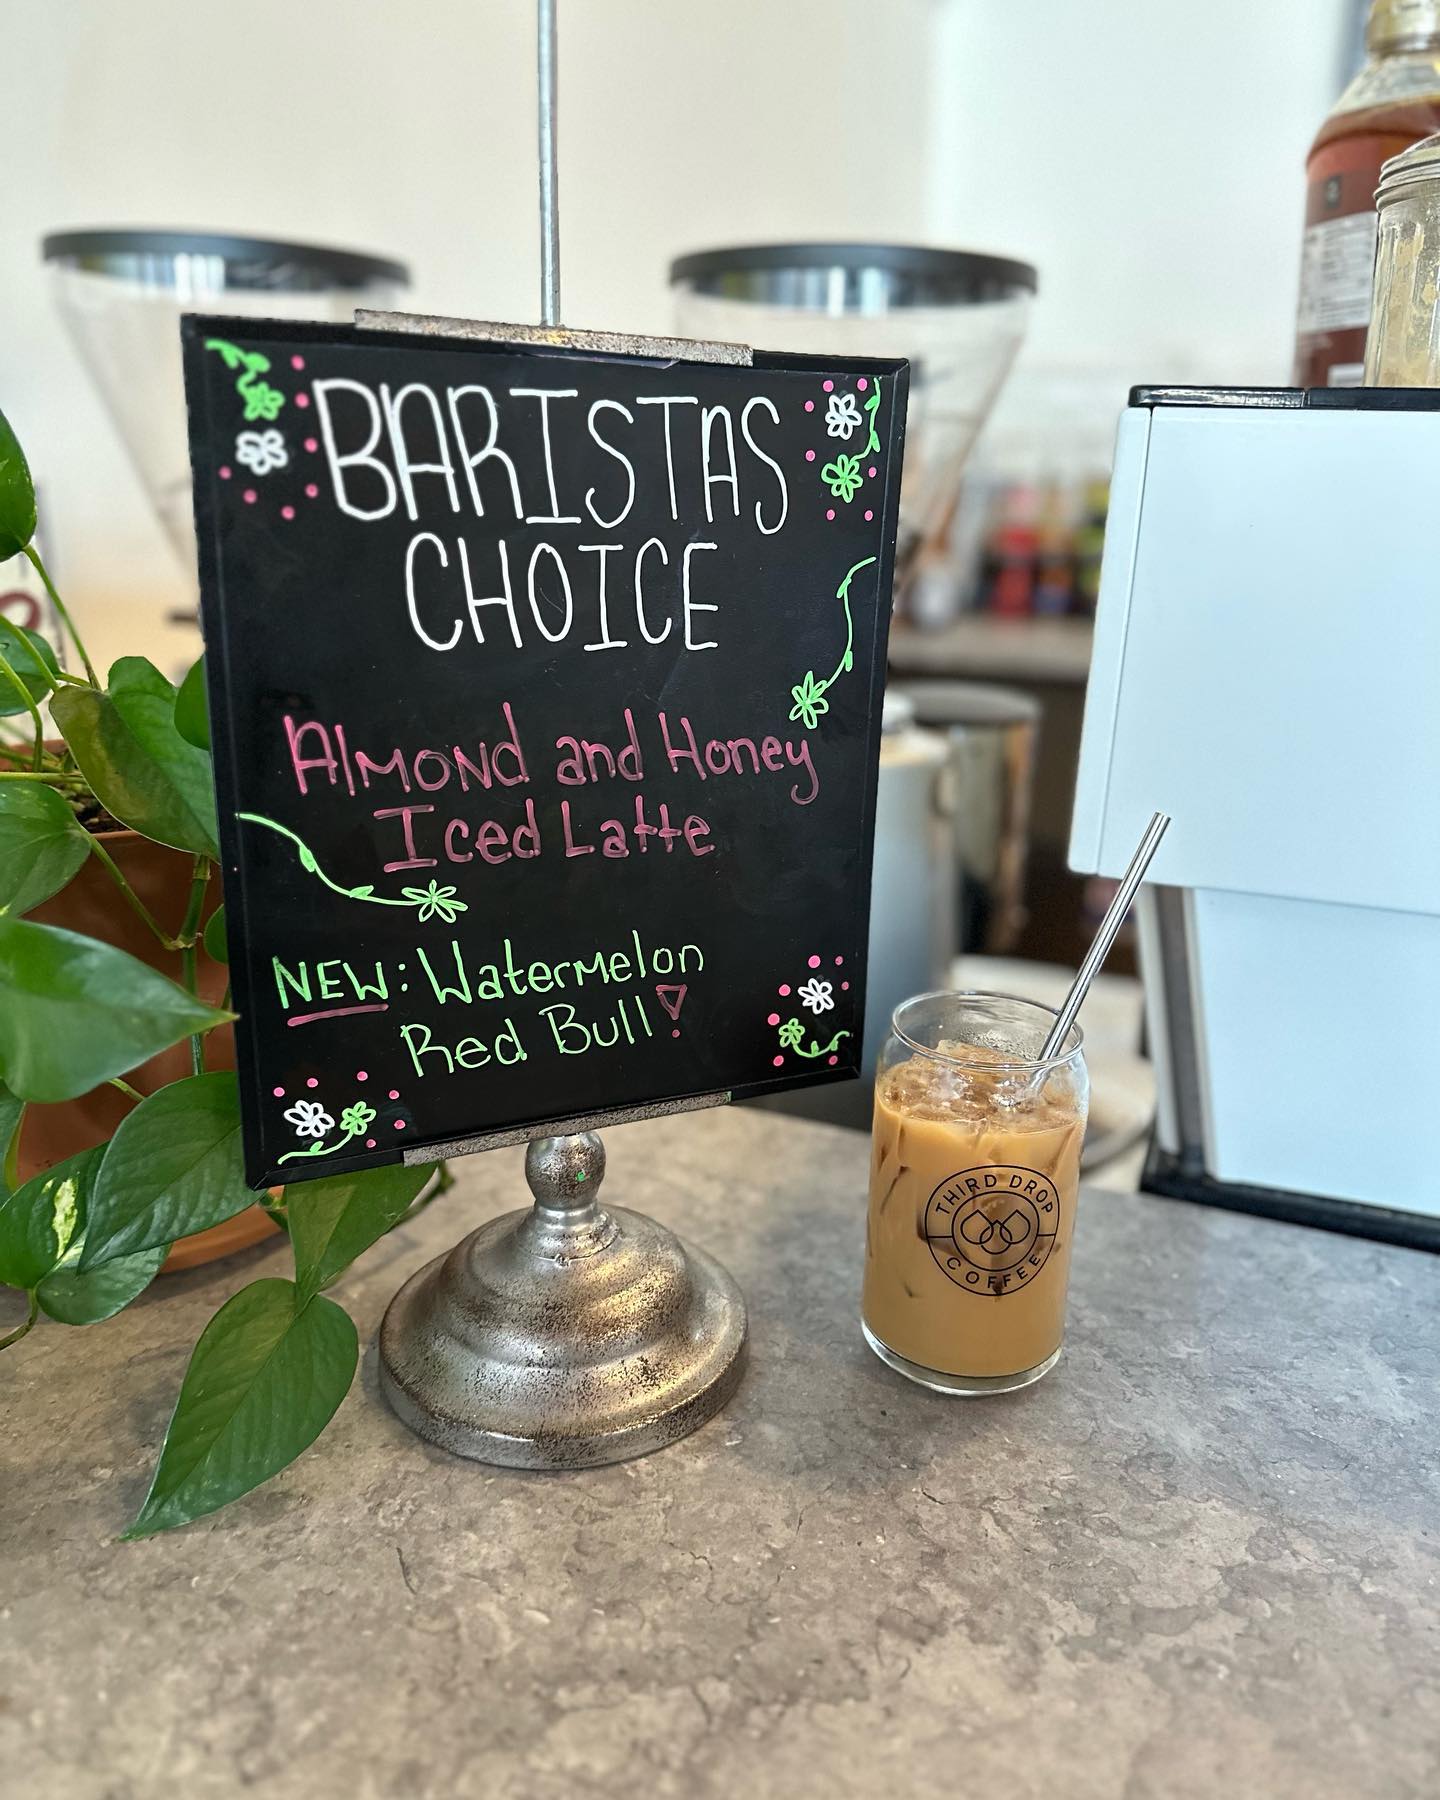 BARISTAS
CHOICE
Almond and Honey
Iced Latte
NEW: Watermelon
Red Bull!
THIRD DROP
COFFEE